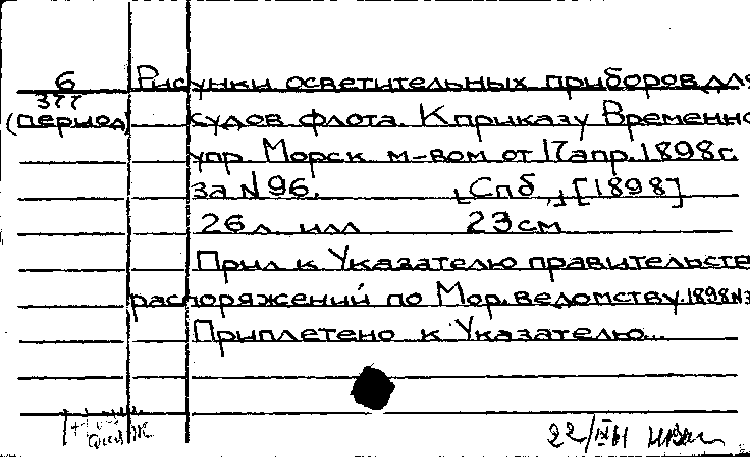 6 Рисунки осветительных приборов для
377
(период) судов флота. К приказу Временно
упр. Морск м-вом от 17 апр. 1898 г.
за N 96. [Спб,] [1898]
26 л. илл 23 см
Прил к Указателю правительств
распоряжений по Мор. ведомству. 1898 N3
Приплетено к Указателю...
22/